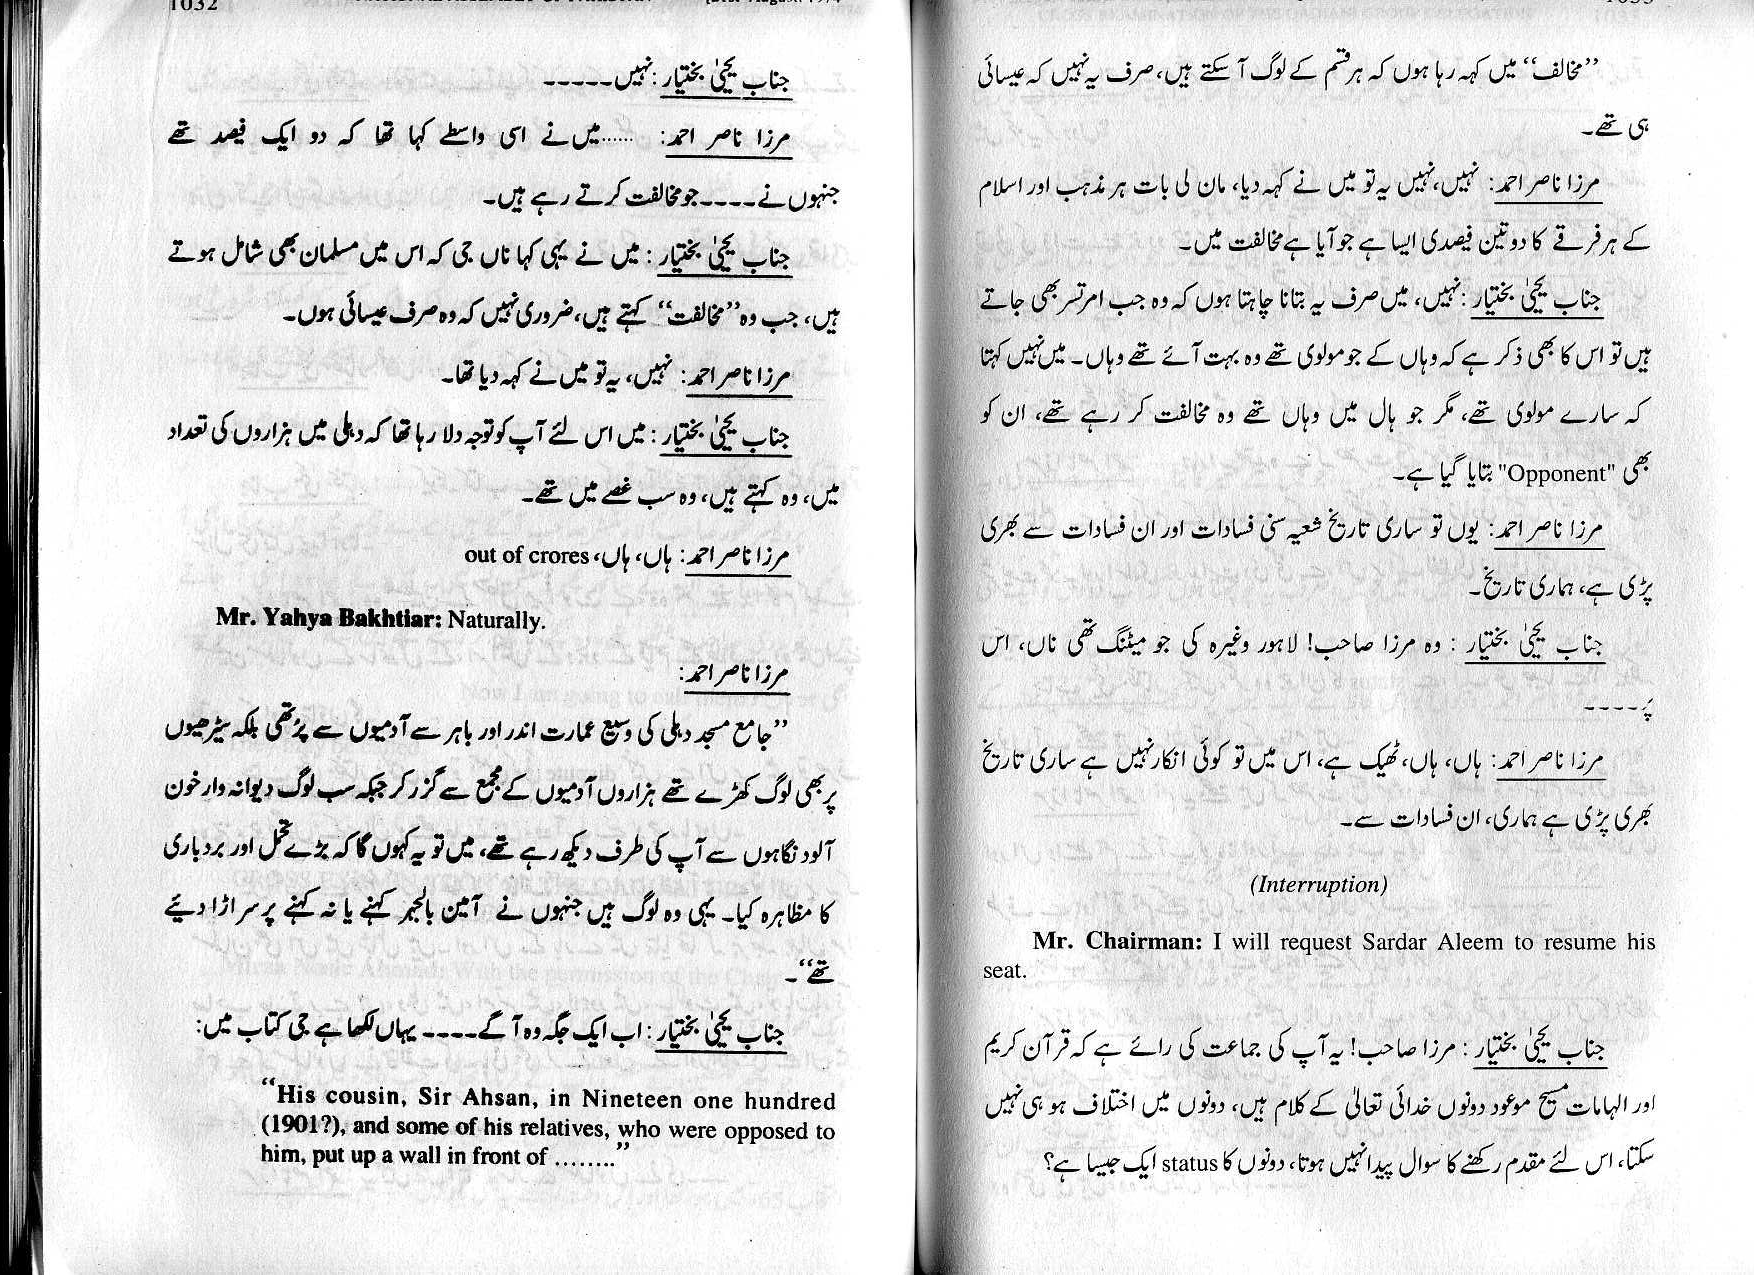 1032
جناب یحییٰ بختیار: نہیں۔۔۔۔۔
مرزا ناصر احمد: ......میں نے اسی واسطے کہا تھا کہ دو ایک فیصد تھے
جنہوں نے۔۔۔۔جو مخالفت کرتے رہے ہیں۔
جناب یحییٰ بختیار: میں نے یہی کہا ناں جی کہ اس میں مسلمان بھی شامل ہوتے
ہیں، جب وہ ”مخالفت“ کہتے ہیں، ضروری نہیں کہ وہ صرف عیسائی ہوں۔
مرزا ناصر احمد: نہیں، یہ تو میں نے کہہ دیا تھا۔
جناب یحییٰ بختیار: میں اس لئے آپ کو توجہ دلا رہا تھا کہ دہلی میں ہزاروں کی تعداد
میں، وہ کہتے ہیں، وہ سب غصے میں تھے۔
مرزا ناصر احمد: ہاں، ہاں، out of crores
Mr. Yahya Bakhtiar: Naturally.
مرزا ناصر احمد:
”جامع مسجد دہلی کی وسیع عمارت اندر اور باہر سے آدمیوں سے پُر تھی بلکہ سیڑھیوں
پر بھی لوگ کھڑے تھے ہزاروں آدمیوں کے مجمع سے گزر کر جبکہ سب لوگ دیوانہ وار خون
آلود نگاہوں سے آپ کی طرف دیکھ رہے تھے، میں تو یہ کہوں گا کہ بڑے تحمل اور بردباری
کا مظاہرہ کیا۔ یہی وہ لوگ ہیں جنہوں نے آمین بالجہر کہنے یا نہ کہنے پر سر اڑا دیئے
تھے“۔
جناب یحییٰ بختیار: اب ایک جگہ وہ آگے۔۔۔۔ یہاں لکھا ہے جی کتاب میں:
“His cousin, Sir Ahsan, in Nineteen one hundred
(1901?), and some of his relatives, who were opposed to
him, put up a wall in front of ........”
”مخالف“ میں کہہ رہا ہوں کہ ہر قسم کے لوگ آ سکتے ہیں، صرف یہ نہیں کہ عیسائی
ہی تھے۔
مرزا ناصر احمد: نہیں، نہیں یہ تو میں نے کہہ دیا، مان لی بات ہر مذہب اور اسلام
کے ہر فرقے کا دو تین فیصدی ایسا ہے جو آیا ہے مخالفت میں۔
جناب یحییٰ بختیار: نہیں، میں صرف یہ بتانا چاہتا ہوں کہ وہ جب امرتسر بھی جاتے
ہیں تو اس کا بھی ذکر ہے کہ وہاں کے جو مولوی تھے وہ بہت آئے تھے وہاں۔ میں نہیں کہتا
کہ سارے مولوی تھے، مگر جو ہال میں وہاں تھے وہ مخالفت کر رہے تھے، ان کو
بھی "Opponent" بتایا گیا ہے۔
مرزا ناصر احمد: یوں تو ساری تاریخ شعیہ سنی فسادات اور ان فسادات سے بھری
پڑی ہے، ہماری تاریخ۔
جناب یحییٰ بختیار: وہ مرزا صاحب! لاہور وغیرہ کی جو میٹنگ تھی ناں، اس
پر۔۔۔۔
مرزا ناصر احمد: ہاں، ہاں، ٹھیک ہے، اس میں تو کوئی انکار نہیں ہے ساری تاریخ
بھری پڑی ہے ہماری، ان فسادات سے۔
(Interruption)
Mr. Chairman: I will request Sardar Aleem to resume his
seat.
جناب یحییٰ بختیار: مرزا صاحب! یہ آپ کی جماعت کی رائے ہے کہ قرآن کریم
اور الہامات مسیح موعود دونوں خدائی تعالیٰ کے کلام ہیں، دونوں میں اختلاف ہو ہی نہیں
سکتا، اس لئے مقدم رکھنے کا سوال پیدا نہیں ہوتا، دونوں کا status ایک جیسا ہے؟